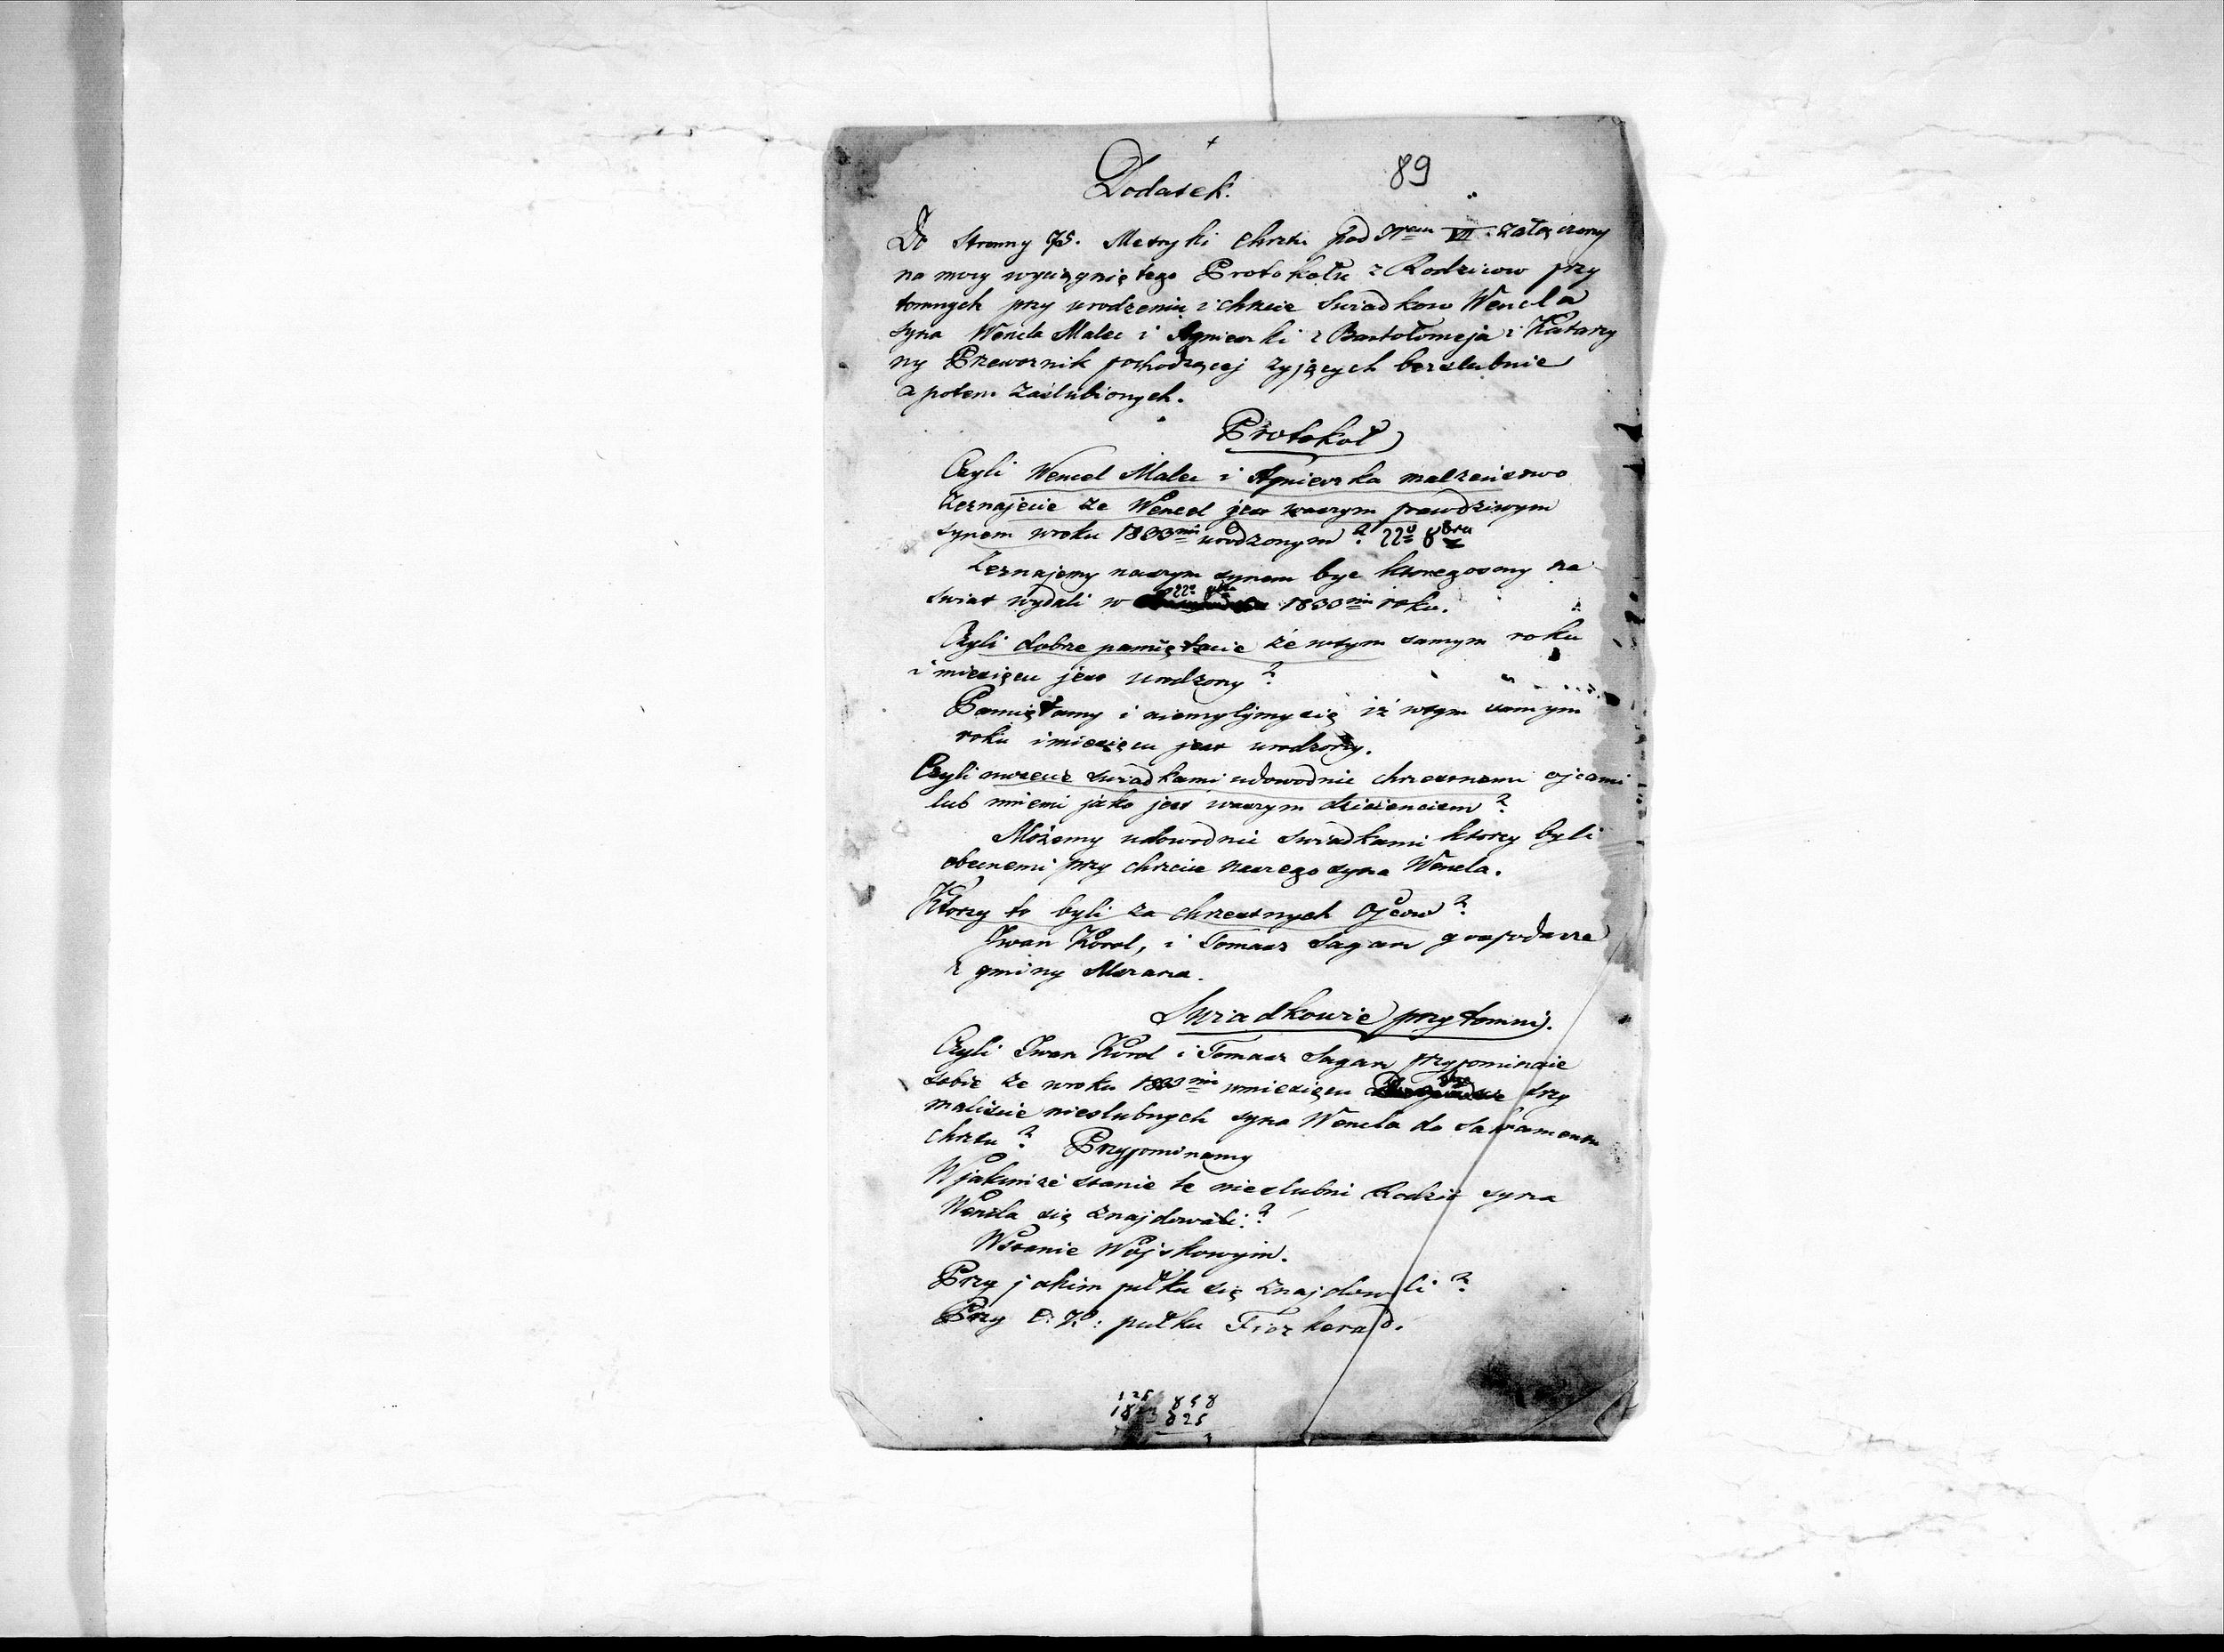 89
Dodatek.
Do Stronny 75. Metryki Chrztu pod Nrem VII załączony
na mocy wyciągniętego Protokołu z Rodzicow przy
tomnych przy urodzeniu i chrzcie Swiadkow Wencla
syna Wencla Malec i Agnieszki z Bartołomeja i Katarzy
ny Przewoznik pochodzącej zyjących bezslubnie
a potem zaślubionych.
Protokoł
Czyli Wencel Malec i Agnieszka malzeństwo
Zeznajecie ze Wencel jest waszym prawdziwym
synem wroku 1833mi urodzonym? 22o 8bra
Zeznajemy naszym synem byc ktoregosmy na
swiat wydali w 22o 1833mi roku.
Czyli dobrze pamiętacie że wtym samym roku
i miesiącu jest urodzony?
Pamiętamy i niemylimy się iż wtym samym
roku imiesięcu jest urodzony.
Czyli mozecie swiadkami udowodnic chrzesnemi ojcami
lub innemi jako jest waszym dziecienciem?
Możemy udowodnic swiadkami ktorzy byli
obecnemi przy chrzcie naszego syna Wencla.
Ktorzy to byli za chrzestnych Ojcow?
Iwan Korol, i Tomasz Sagan gospodarze
z gminy Mszana.
Swiadkowie przytomni.
Czyli Iwan Korol i Tomasz Sagan przypominacie
sobie ze wroku 1833mi wmiesięcu trzy
maliscie nieslubnych syna Wencla do Sakramentu
chrztu? Przypominamy
Wjakimże stanie te nieslubni Rodzice syna
Wencla się znajdowali?
Wstanie Wojskowym.
Przy jakim pułku się znajdowali?
Przy C: K: pułku Fiozkerald.
858
825